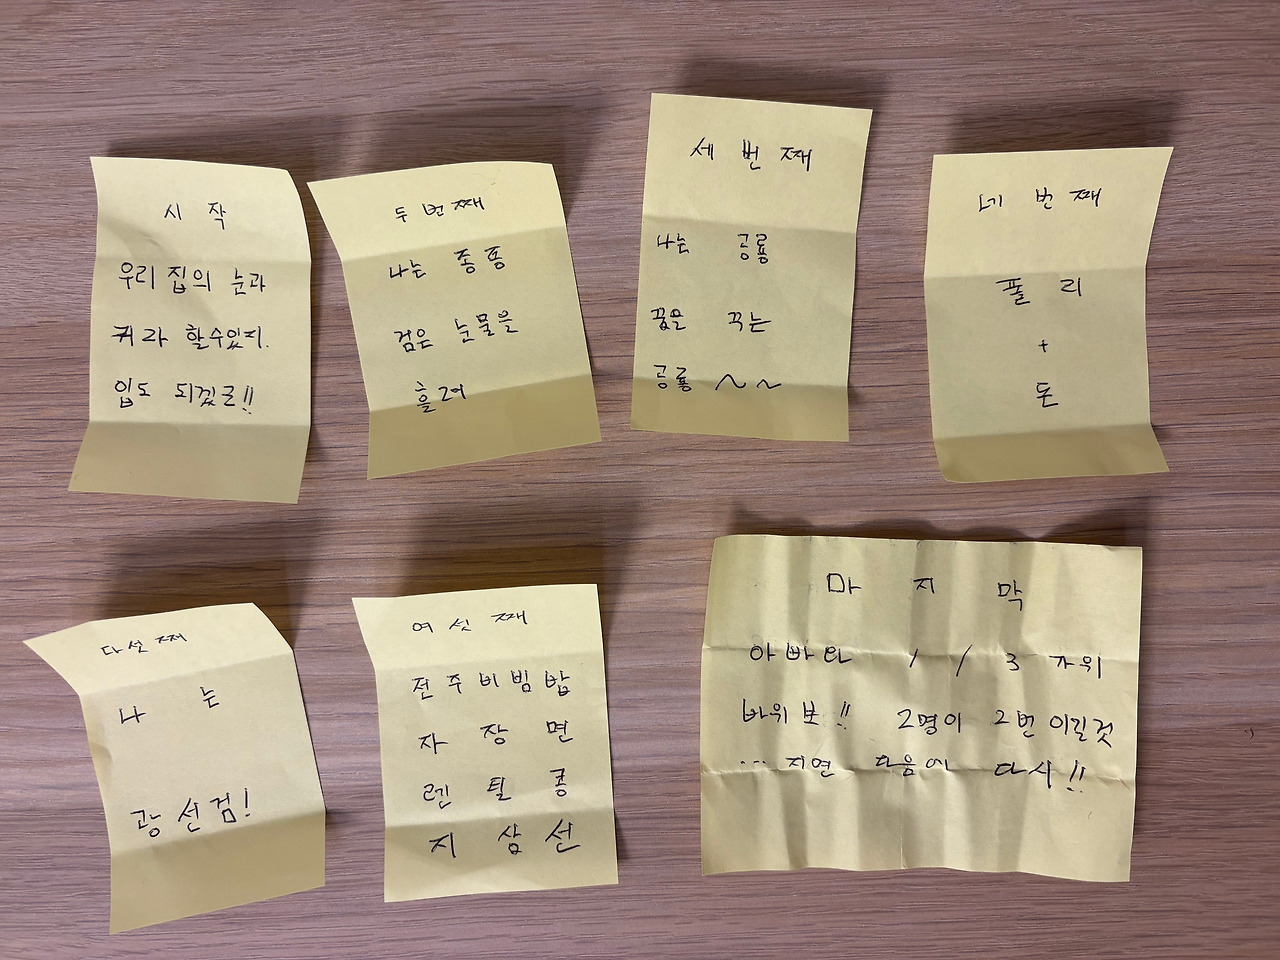 시작
우리 집의 눈과
귀라 할수있지.
입도 되겠군!!
두번째
나는 종종
검은 눈물을
흘려
세 번 째
나는 공룡
꿈을 꾸는
공룡 ~~
네 번 째
풀 리
+
돈
다섯 째
나 는
광선검!
여섯 째
전주비빔밥
자 장 면
렌 틸 콩
지 삼 선
마 지 막
아빠랑 1 / 3 가위
바위 보!! 2명이 2번 이길것
... 지면 다음에 다시!!